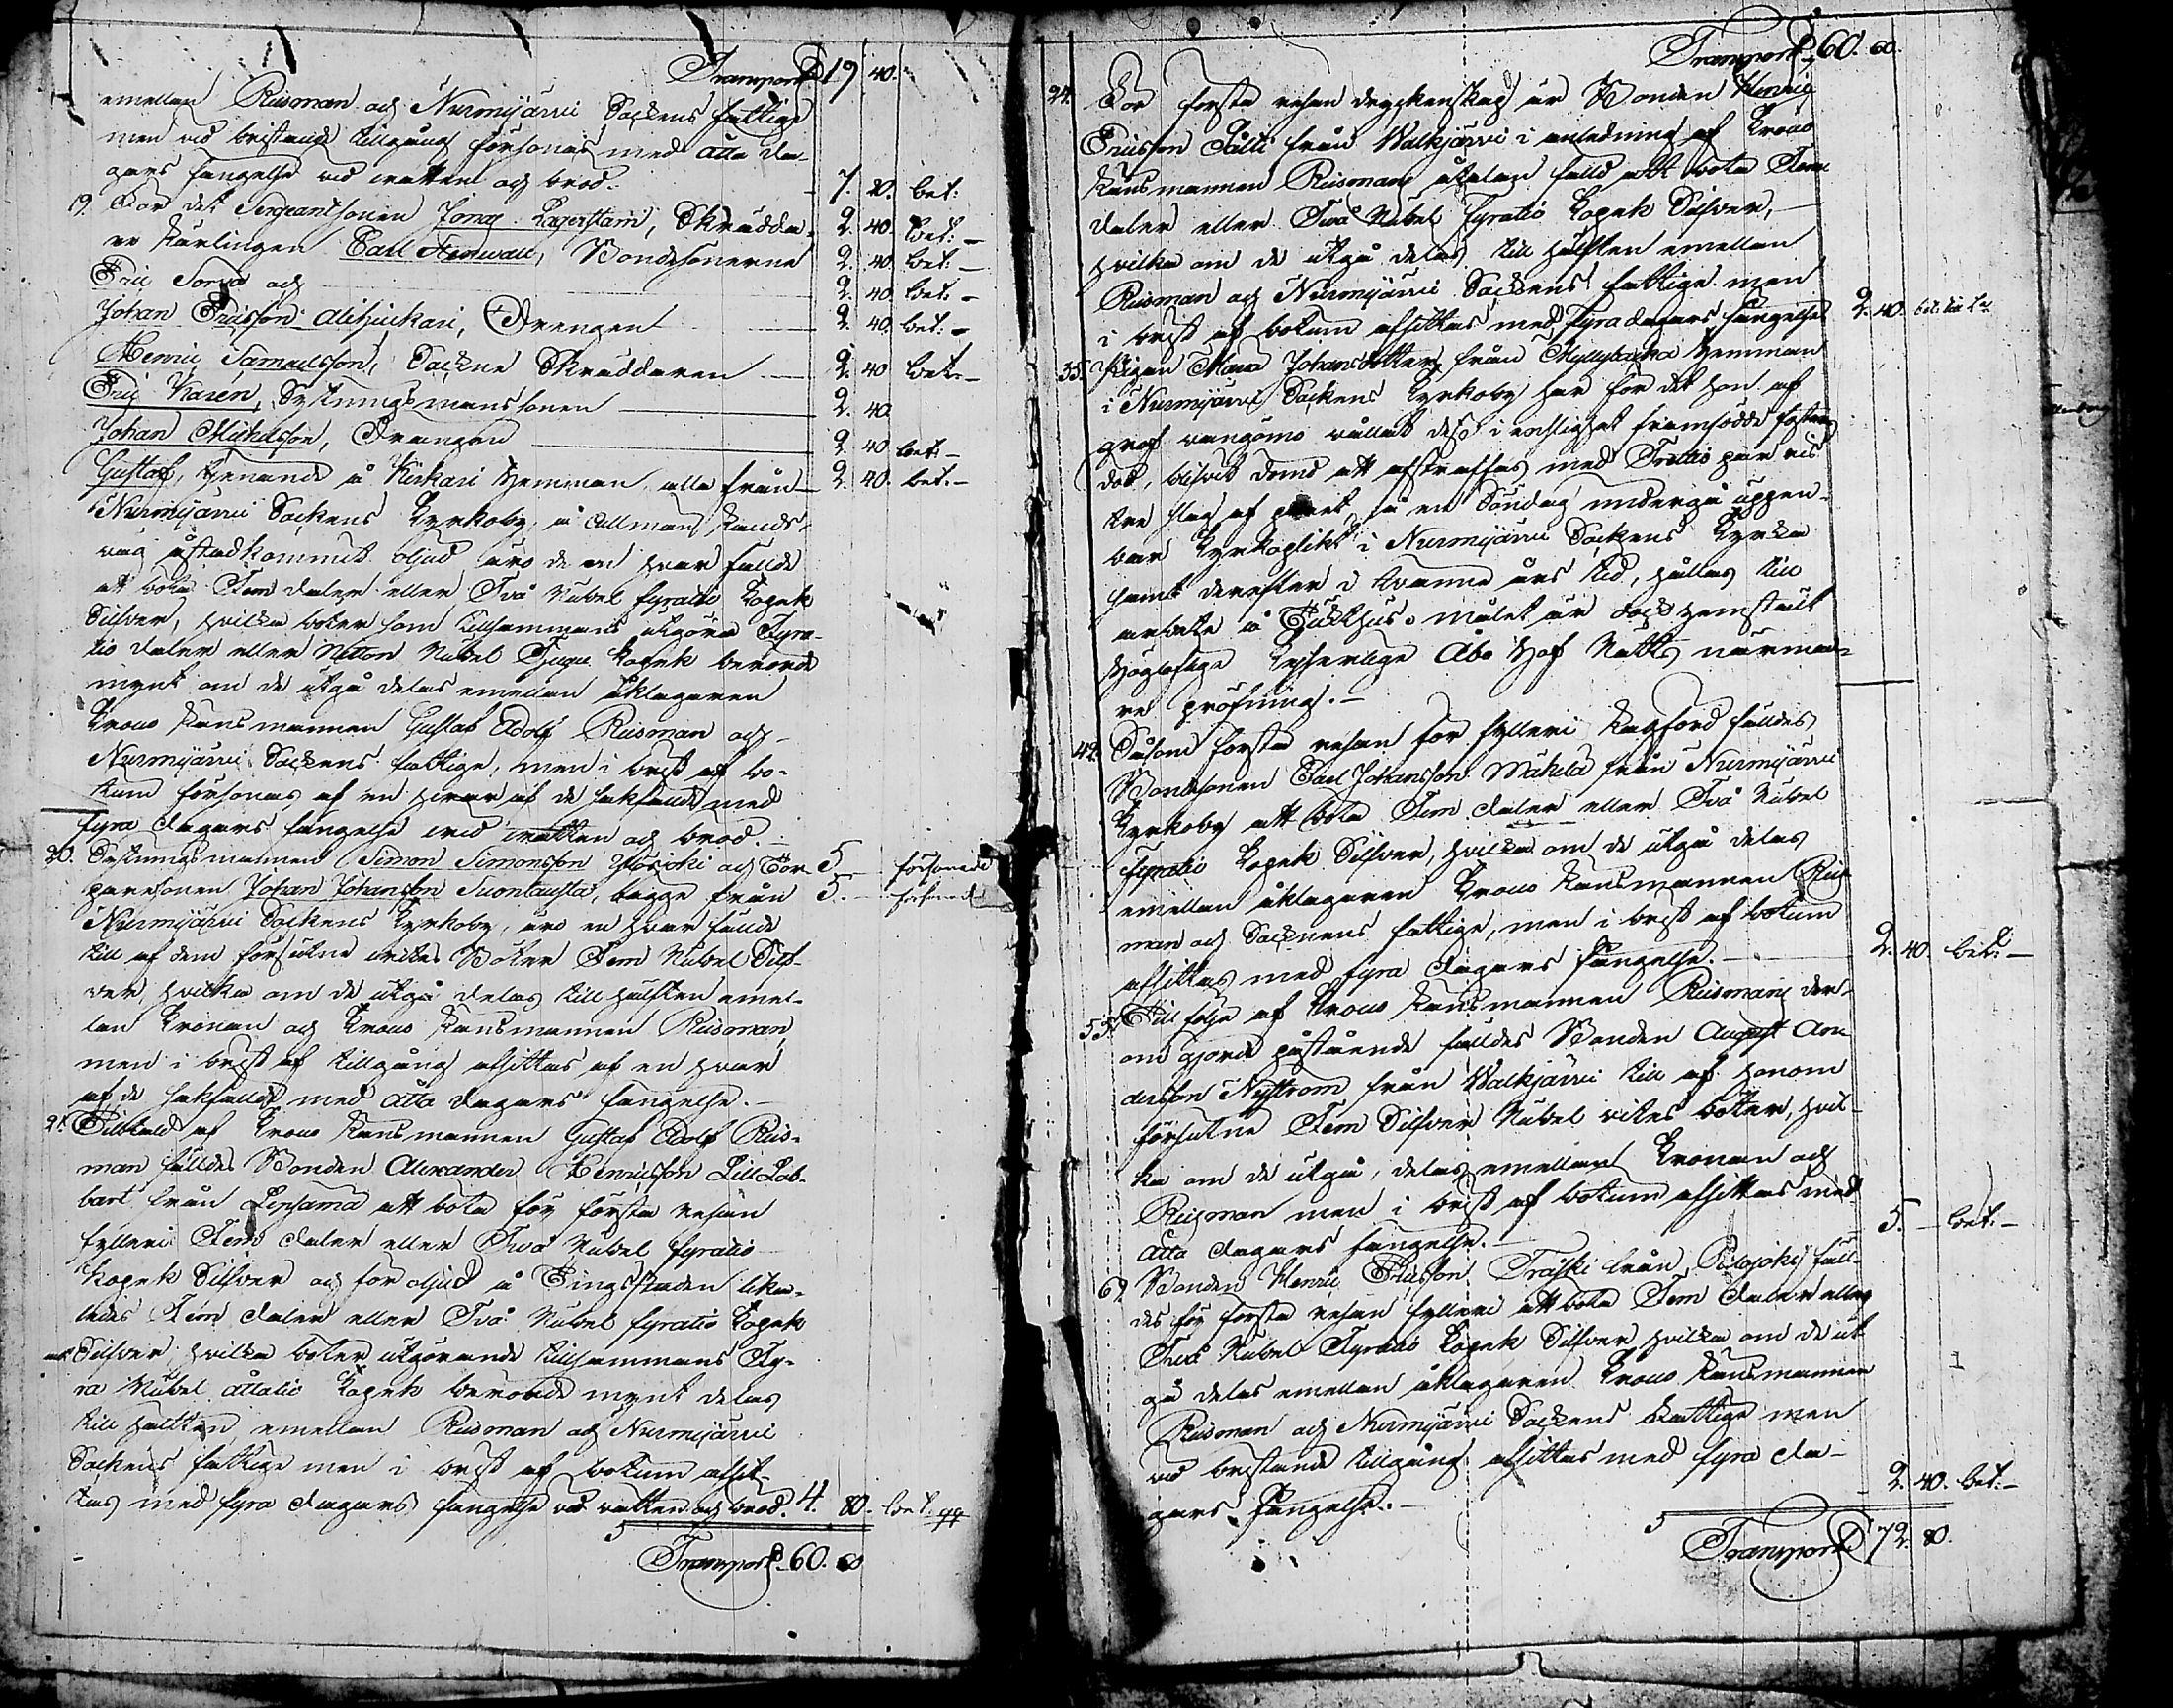 Transport 19 40.
emellan Riisman och Nurmijärvi Sockens fattige
men vid bristande tillgång försonas med åtta da-
gars fängelse vid vatten och bröd. 7. 20. bet:
19. För det Sergeantsonen Jonas Lagerstam, Skrädda- 2. 40. bet: -
re Lärlingen Carl Stenwall, Bondesonerne 2. 40 bet: -
Eric Sorva och 2. 40 bet: -
Johan Ericsson Alitjuikari, Drengen 2. 40. bet: -
Henric Samuelsson, Sockne Skräddaren 2. 40 bet: -
Eric Karén, Sexmansonen 2. 40.
Johan Michelsson, Drängen 2. 40 bet: -
Gustaf, tjenande å Kirkari Hemman, alla från 2. 40. bet. -
Nurmijärvi Sockens Kyrkoby, å Allman Lands-
väg åstadkommit oljud äro de en hvar fällde
att böta Fem daler eller Två Rubel fyratio Kopek
Silfver, hvilka böter som tillsammans utgöra Fyra-
tio daler eller Nitton Rubel Tjugu Kopek berörde
mynt om de utgå delas emellan åklagaren
Krono Länsmannen Gustaf Adolf Riisman och
Nurmijärvi Sockens fattige, men i brist af bö-
tum försonas af en hvar af de sakfällde med
fyra dagars fängelse vid vatten och bröd. -
20. mannen Simon Simonsson Yliojoki och Tor- 5 försonade
paresonen Johan Johansson Suontausta, bägge från 5. - försonad
Nurmijärvi Sockens Kyrkoby, äro en hvar fällde
till af dem försutne vites Böter Fem Rubel Silf-
ver, hvilka om de utgå delas till hälften emel-
lan Kronan och Krono Länsmannen Riisman,
men i brist af tillgång afsittas af en hvar
af de sakfällde med åtta dagars fängelse. -
21. Tilltald af Krono Länsmannen Gustaf Adolf Riis-
man fälldes Bonden Alexander Henricsson Lill Lob-
bart från Lepsama att böta för första resan
fylleri Fem daler eller Två Rubel fyratio
Kopek Silfver och för oljud å Tingsstaden lika-
ledes Fem daler eller Två Rubel fyratio Kopek
Silfver hvilka böter utgörande tillsammans Fy-
ra Rubel åttatio Kopek berörde mynt delas
till hälften emellan Riisman och Nurmijärvi
Sockens fattige men i brist af bötum afsit-
tas med fyra dagars fängelse vid vatten och bröd. 4. 80. bet.
Transport 60. 60
Transport 60. 60.
24. För första resan dryckenskap är Bonden Henric
Ericsson Pälli från Walkjärvi i anledning af Krono
Länsmannen Riismans åtalan fälld att böta Fem
daler eller Två Rubel fyratio Kopek Silfver,
hvilka om de utgå delas till hälften emellan
Riisman och Nurmijärvi Sockens fattige men
i brist af bötum afsittas med fyra dagars fängelse 2. 40. bet:
35. Pigan Maria Johansdotter från Myllykoska Hemman
i Nurmijärvi Sockens Kyrkoby har för det hon af
grof vangömo vållat dess i enslighet framfödde fosters
död, blifvit dömd att afstraffas med Trettio par ris
tre slag af paret, en Söndag undergå uppen-
bar Kyrkoplikt i Nurmijärvi Sockens Kyrka
samt derefter i tvenne års tid, hållas till
arbete å Tukthus. målet är dock hemstält
Höglofliga Kejserliga Åbo Hof Rätts närma-
re pröfning. -
44. Såsom första resan för fylleri lagförd fälldes
Bondesonen Carl Johansson Mäkelä från Nurmijärvi
Kyrkoby att böta Fem daler eller Två Rubel
fyratio Kopek Silfver, hvilka om de utgå delas
emellan åklagaren Krono Länsmannen Riis-
man och Sockenens fattige, men i brist af bötum
afsittas med fyra dagars fängelse. - 2. 40. bet: -
55. Till följe af Krono Länsmannen Riismans der-
om gjorde påstående fälldes Bonden August An-
dersson Nyström från Walkjärvi till af honom
försutne Fem Silfver Rubel vites böter, hvil-
ka om de utgå, delas emellan Kronan och
Riisman men i brist af bötum afsittas med
åtta dagars fängelse. - 5. - bet: -
69. Bonden Henric Ericsson Träski från Palojoki fäll-
des för första resan fylleri att böta Fem daler eller
Två Rubel Fyratio Kopek Silfver hvilka om de ut-
gå delas emellan åklagaren Krono Länsmannen
Riisman och Nurmijärvi Sockens fattige men
vid bristande tillgång afsittas med fyra da-
gars fängelse. - 2. 40. bet: -
Transport 72. 80.